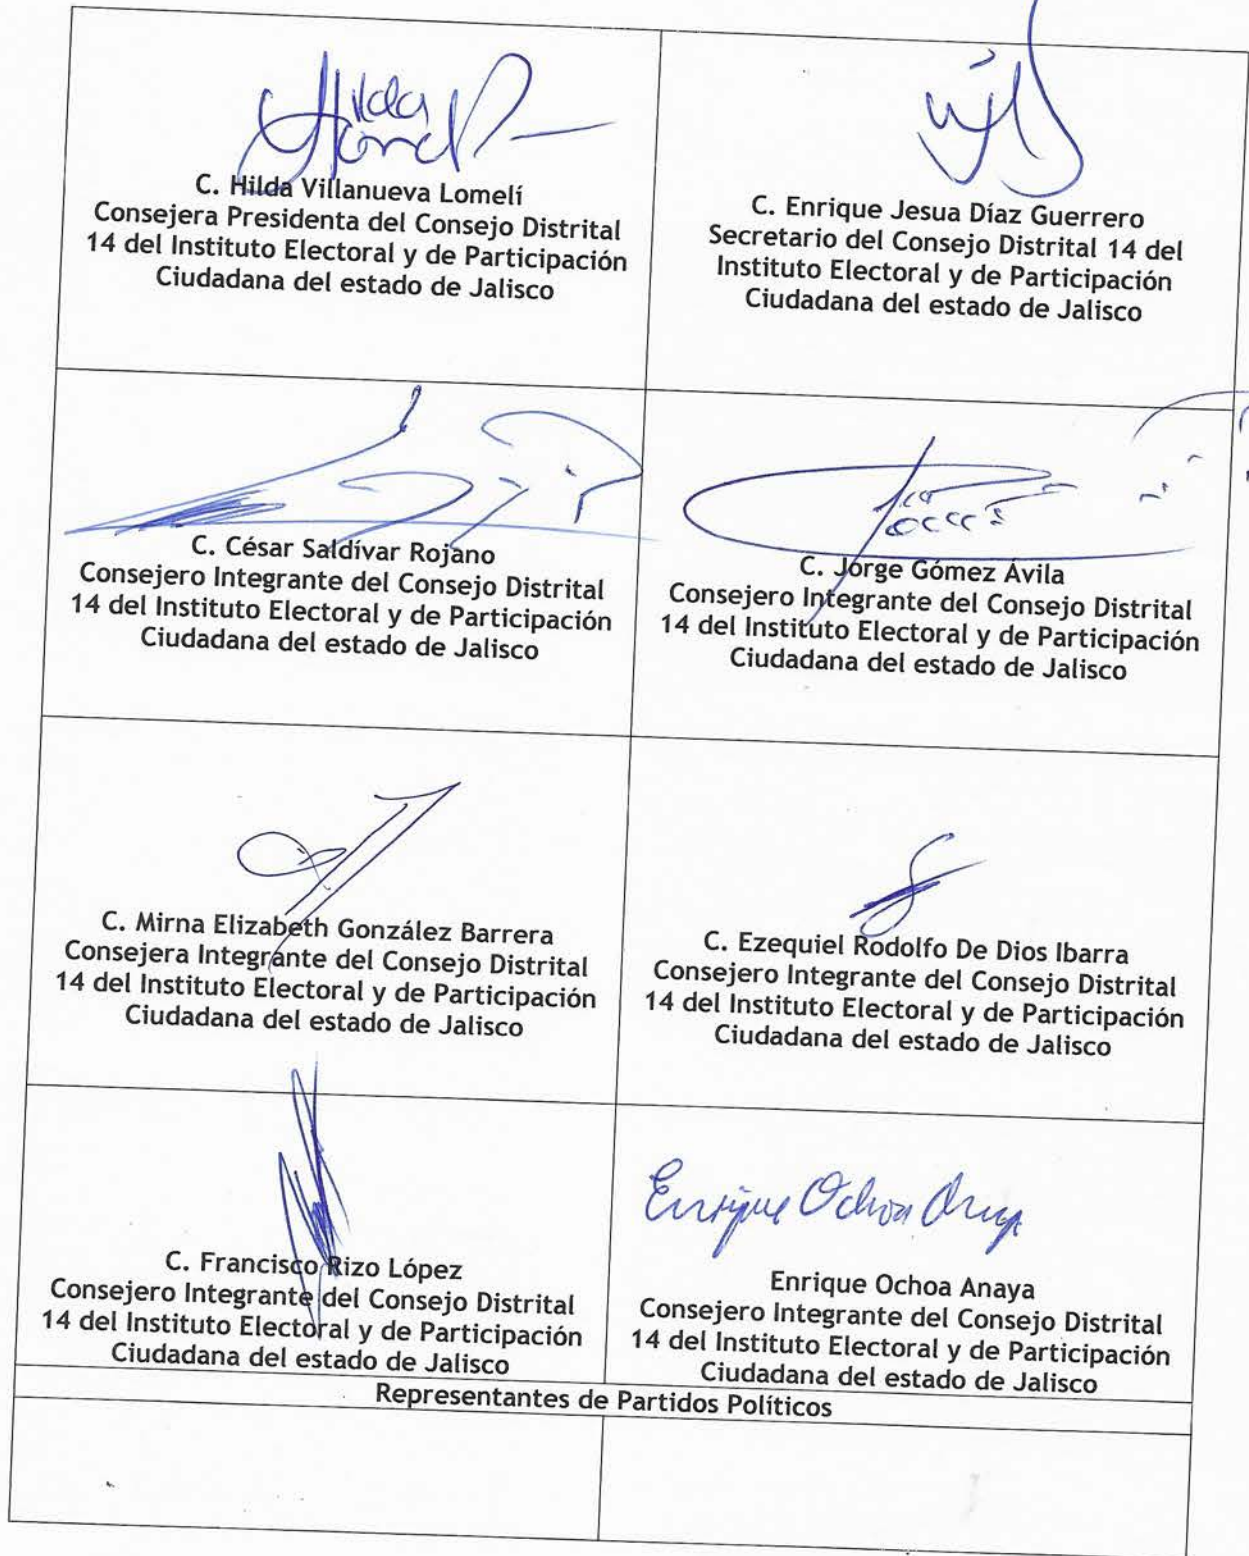 Hilda
C. Hilda Villanueva Lomelí
Consejera Presidenta del Consejo Distrital
14 del Instituto Electoral y de Participación
Ciudadana del estado de Jalisco
C. Enrique Jesua Díaz Guerrero
Secretario del Consejo Distrital 14 del
Instituto Electoral y de Participación
Ciudadana del estado de Jalisco
C. César Saldívar Rojano
Consejero Integrante del Consejo Distrital
14 del Instituto Electoral y de Participación
Ciudadana del estado de Jalisco
C. Jorge Gómez Ávila
Consejero Integrante del Consejo Distrital
14 del Instituto Electoral y de Participación
Ciudadana del estado de Jalisco
C. Mirna Elizabeth González Barrera
Consejera Integrante del Consejo Distrital
14 del Instituto Electoral y de Participación
Ciudadana del estado de Jalisco
C. Ezequiel Rodolfo De Dios Ibarra
Consejero Integrante del Consejo Distrital
14 del Instituto Electoral y de Participación
Ciudadana del estado de Jalisco
C. Francisco Rizo López
Consejero Integrante del Consejo Distrital
14 del Instituto Electoral y de Participación
Ciudadana del estado de Jalisco
Enrique Ochoa
Enrique Ochoa Anaya
Consejero Integrante del Consejo Distrital
14 del Instituto Electoral y de Participación
Ciudadana del estado de Jalisco
Representantes de Partidos Políticos